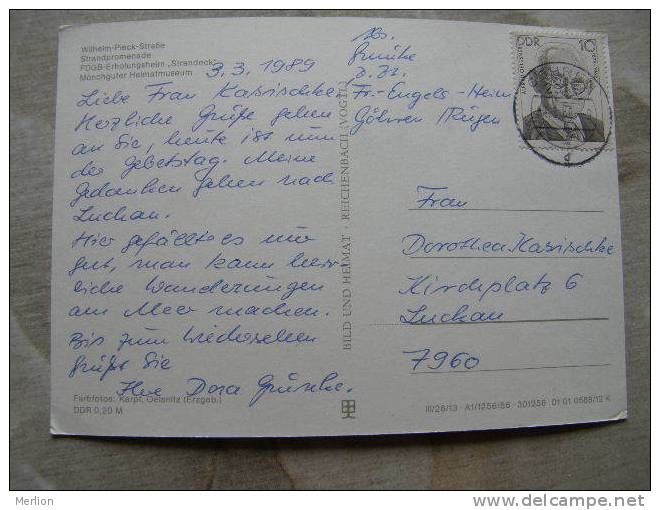 Wilhelm-Pieck-Straße
Strandpromenade
FDGB-Erholungsheim „Strandeck"
Mönchguter Heimatmuseum
3.3.1989
Liebe Frau Kasischke
Herzliche Grüße gehen
an Sie, heute ist nun
der Gebetstag. Meine
Gedanken gehen nach
Luckau.
Hier gefällt es mir
gut, man kann herr-
liche Wanderungen
am Meer machen.
Bis zum Wiedersehen
grüßt Sie
Ihre Dora
Farbfotos: Karpf, Oelsnitz (Erzgeb.)
DDR 0,20 M
BILD UND HEIMAT · REICHENBACH (VOGTL)
Abs.
z. Zt.
Fr.-Engels-Heim
Göhren Rügen
DDR 10
Frau
Dorothea Kasischke
Kirchplatz 6
Luckau
7960
III/26/13 · A1/1256/86 · 301256 01 01 0588/12 K
Merlion
www.delcampe.net